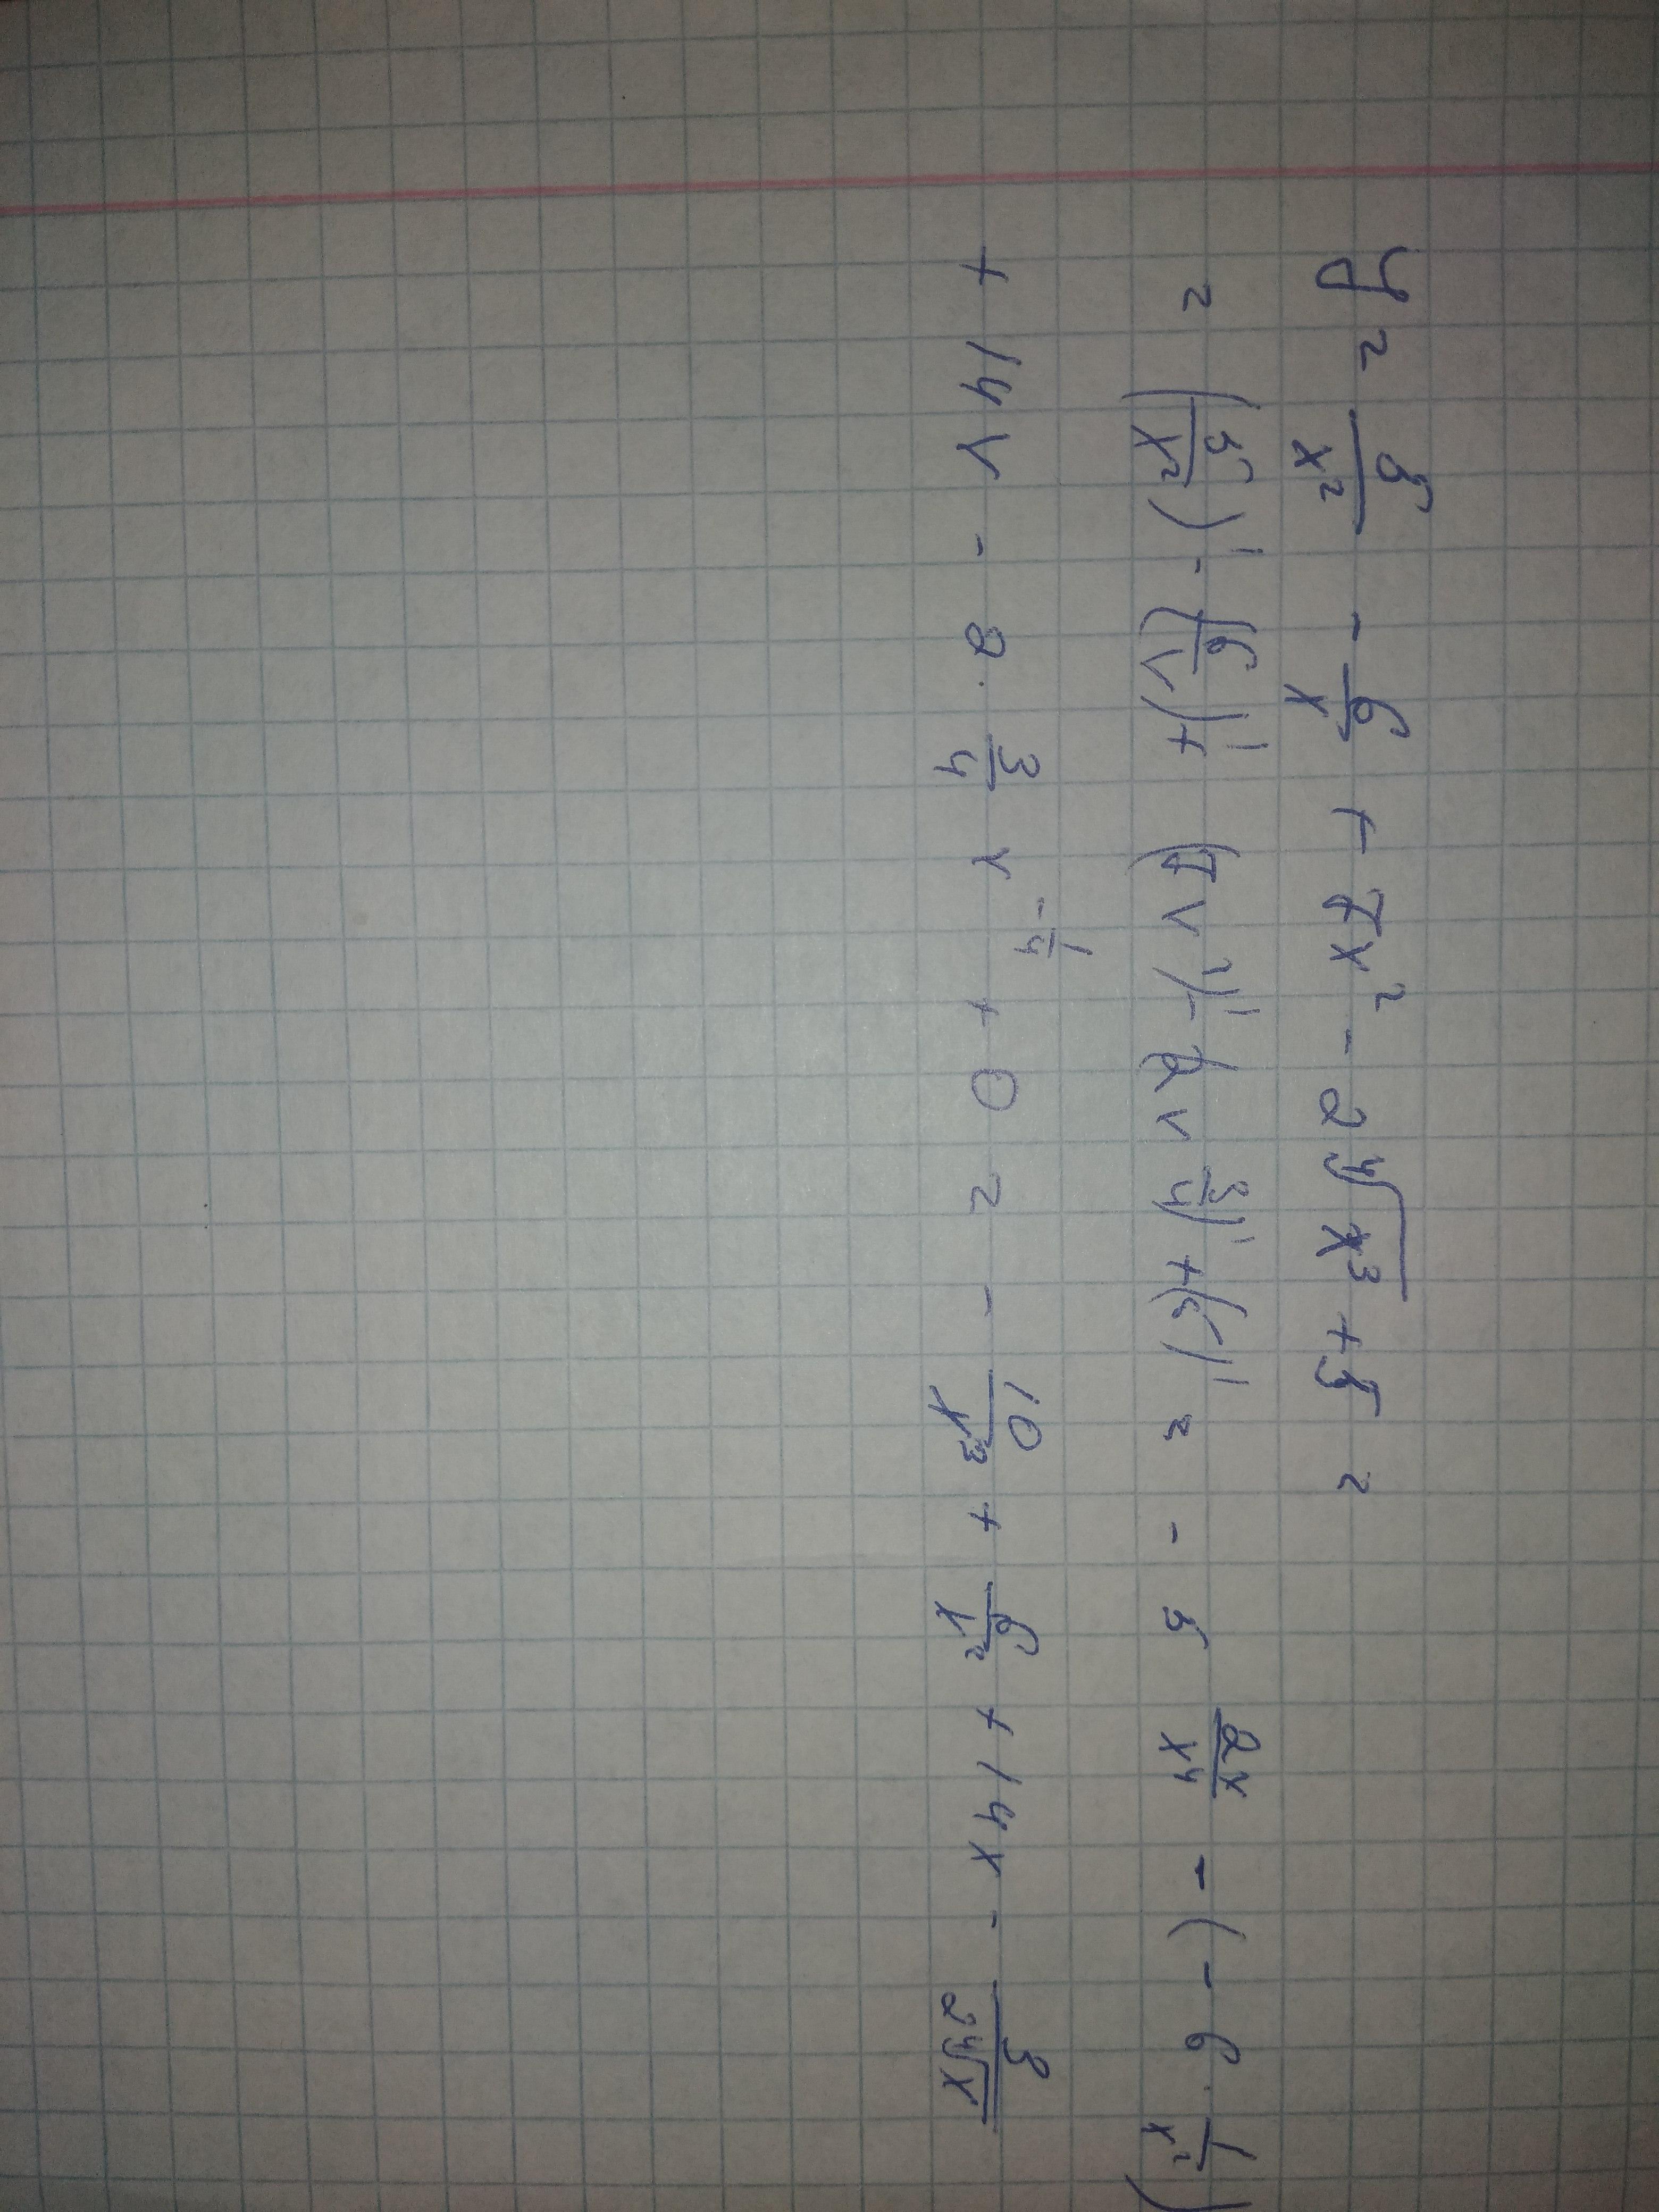 y = 5/x² - 6/x + 7x² - 2⁴√x³ + 5 =
= (5/x²)' - (6/x)' + (7x²)' - (2x^(3/4))' + (5)' = - 5 2x/x⁴ - (- 6 · 1/x²)
+ 14x - 2 · 3/4 x^(-1/4) + 0 = - 10/x³ + 6/x² + 14x - 3/2⁴√x